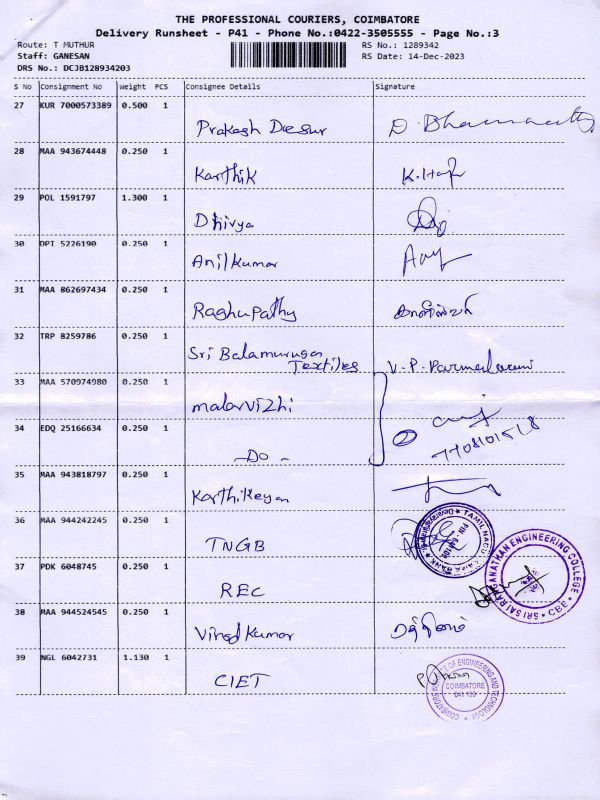 THE PROFESSIONAL COURIERS, COIMBATORE
Delivery Runsheet - P41 - Phone No.:0422-3505555 - Page No.:3
Route: T MUTHUR RS No.: 1289342
Staff: GANESAN RS Date: 14-Dec-2023
DRS No.: DCJB128934203
S No Consignment No Weight PCS Consignee Details Signature
27 KUR 7000573389 0.500 1
Prakash
28 MAA 943674448 0.250 1
Karthik
29 POL 1591797 1.300 1
Dhivya
30 DPI 5226190 0.250 1
Anilkumar
31 MAA 862697434 0.250 1
Raghupathy
32 TRP 8259786 0.250 1
Sri Balamurugan
Textiles V.P.
33 MAA 570974980 0.250 1
malarvizhi
34 EDQ 25166634 0.250 1
-Do-
35 MAA 943818797 0.250 1
Karthikeyan
36 MAA 944242245 0.250 1
TNGB
37 PDK 6048745 0.250 1
REC
SRI RANGANATHAN ENGINEERING COLLEGE CBE
38 MAA 944524545 0.250 1
Vinod Kumar
39 NGL 6042731 1.130 1
CIET
COIMBATORE